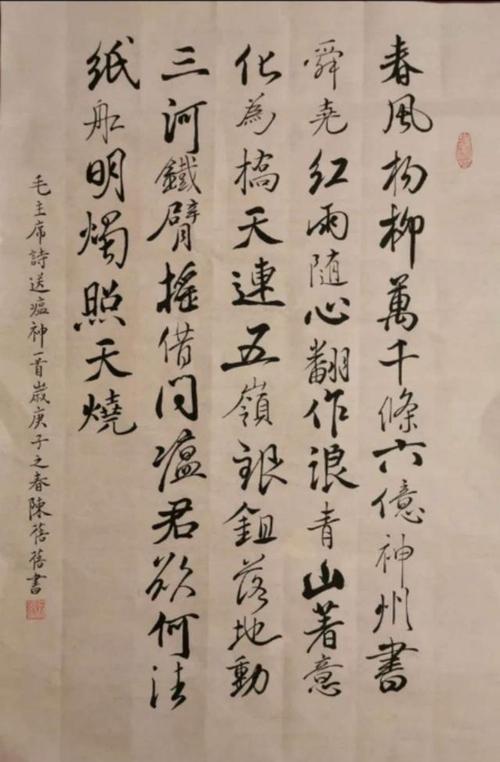 春風杨柳萬千條六億神州書
舜堯红雨隨心翻作浪青山著意
化為橋天連五嶺銀鋤落地動
三河鐵臂摇借问瘟君欲何往
紙船明燭照天燒
毛主席詩送瘟神一首歲庚子之春陳蓓蓓書